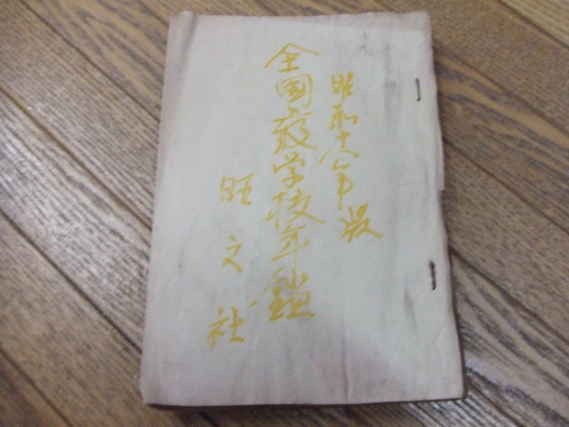 昭和十八年版
全國学校年鑑
旺文社